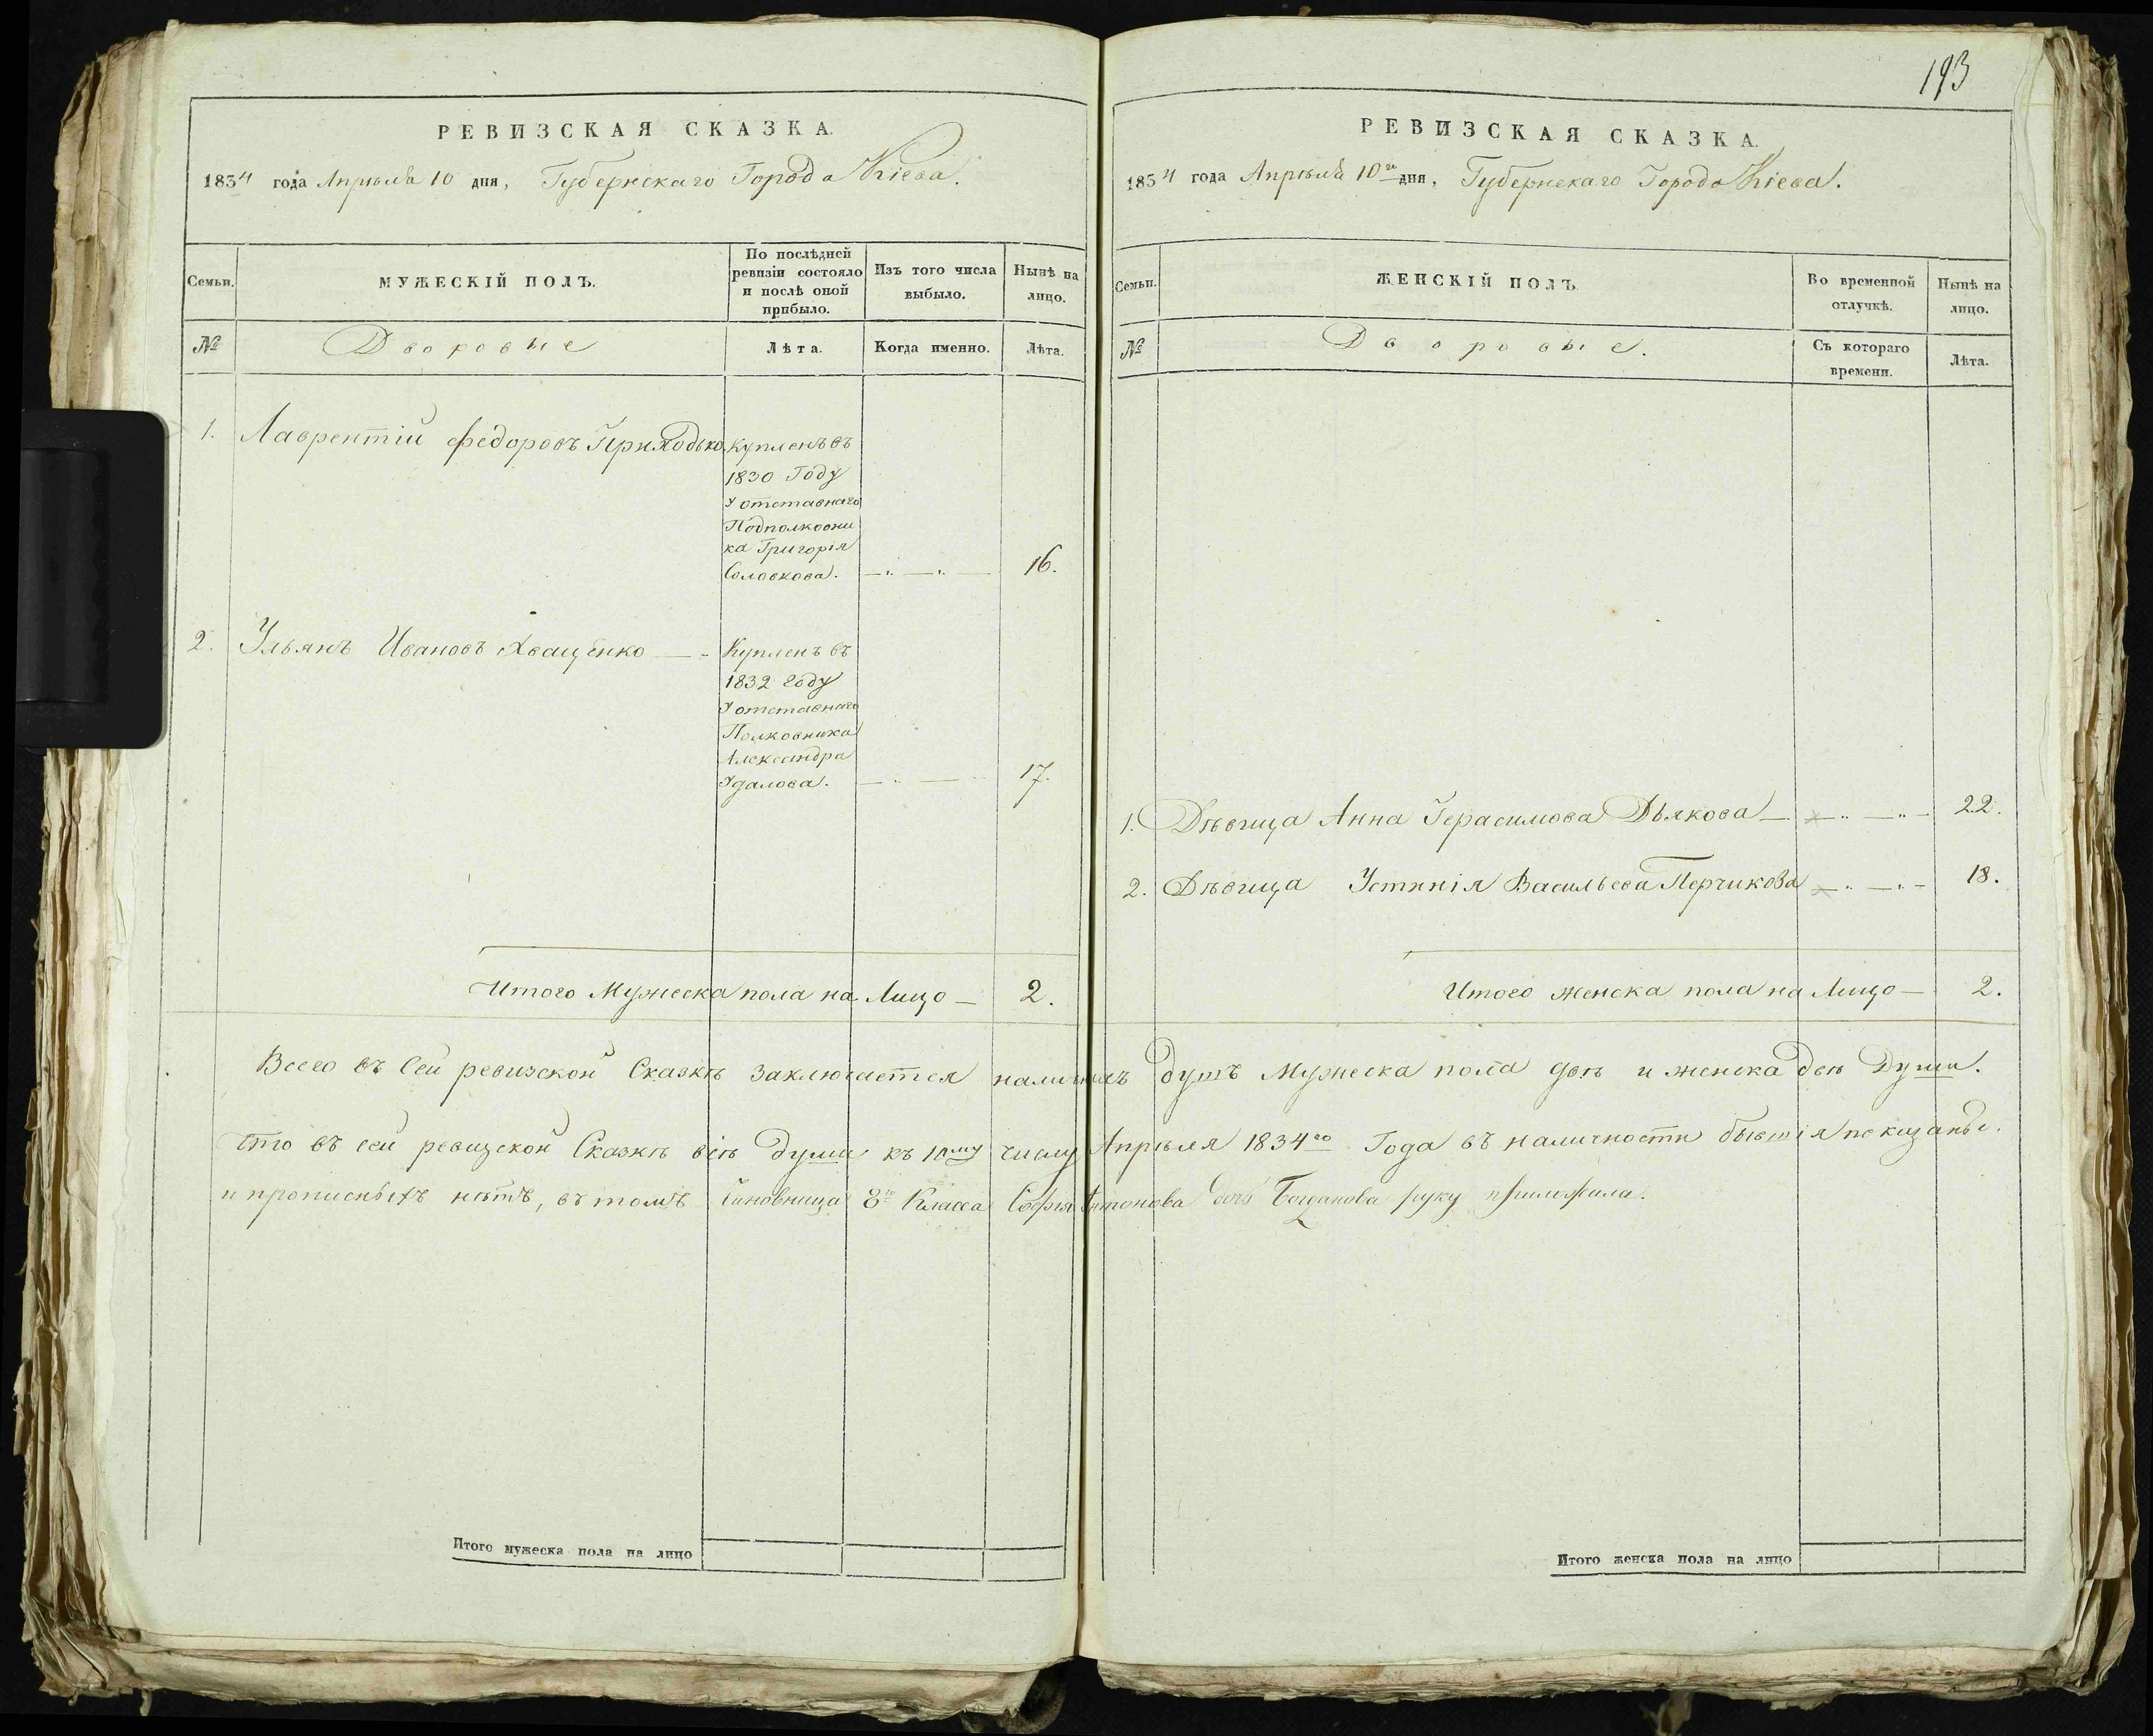 193
РЕВИЗСКАЯ СКАЗКА.
1834 года Апрѣля 10 дня, Губернскаго Города Кіева.
Семьи.
МУЖЕСКІЙ ПОЛЪ.
По послѣдней
ревизіи состояло
и послѣ оной
прибыло.
Изъ того числа
выбыло.
Нынѣ на
лицо.
№
Дворовые
Лѣта.
Когда именно.
Лѣта.
1. Лаврентій Федоровъ Приходько
Купленъ въ
1830 Году
У отставнаго
Подполковни
ка Григорія
Соловкова.
16.
2. Ульянъ Ивановъ Хващенко
Купленъ въ
1832 году
У отставнаго
Полковника
Александра
Удалова.
17.
Итого Мужеска пола на Лицо — 2.
РЕВИЗСКАЯ СКАЗКА.
1834 года Апрѣля 10го дня, Губернскаго Города Кіева.
Семьи.
ЖЕНСКІЙ ПОЛЪ.
Во временной
отлучкѣ.
Нынѣ на
лицо.
№
Дворовые.
Съ котораго
времени.
Лѣта.
1. Дѣвица Анна Герасимова Дьякова 22.
2. Дѣвица Устинія Васильева Перчикова 18.
Итого женска пола на Лицо — 2.
Всего въ Сей ревизской Сказкѣ заключается наличныхъ душъ Мужеска пола двѣ и женска двѣ Души.
Что въ сей ревизской Сказкѣ всѣ души къ 10му числу Апрѣля 1834го Года въ наличности бывшія показаны.
и прописныхъ нѣтъ, въ томъ Чиновница 8го Класса Софія Антонова дочь Богданова руку приложила.
Итого мужеска пола на лицо
Итого женска пола на лицо